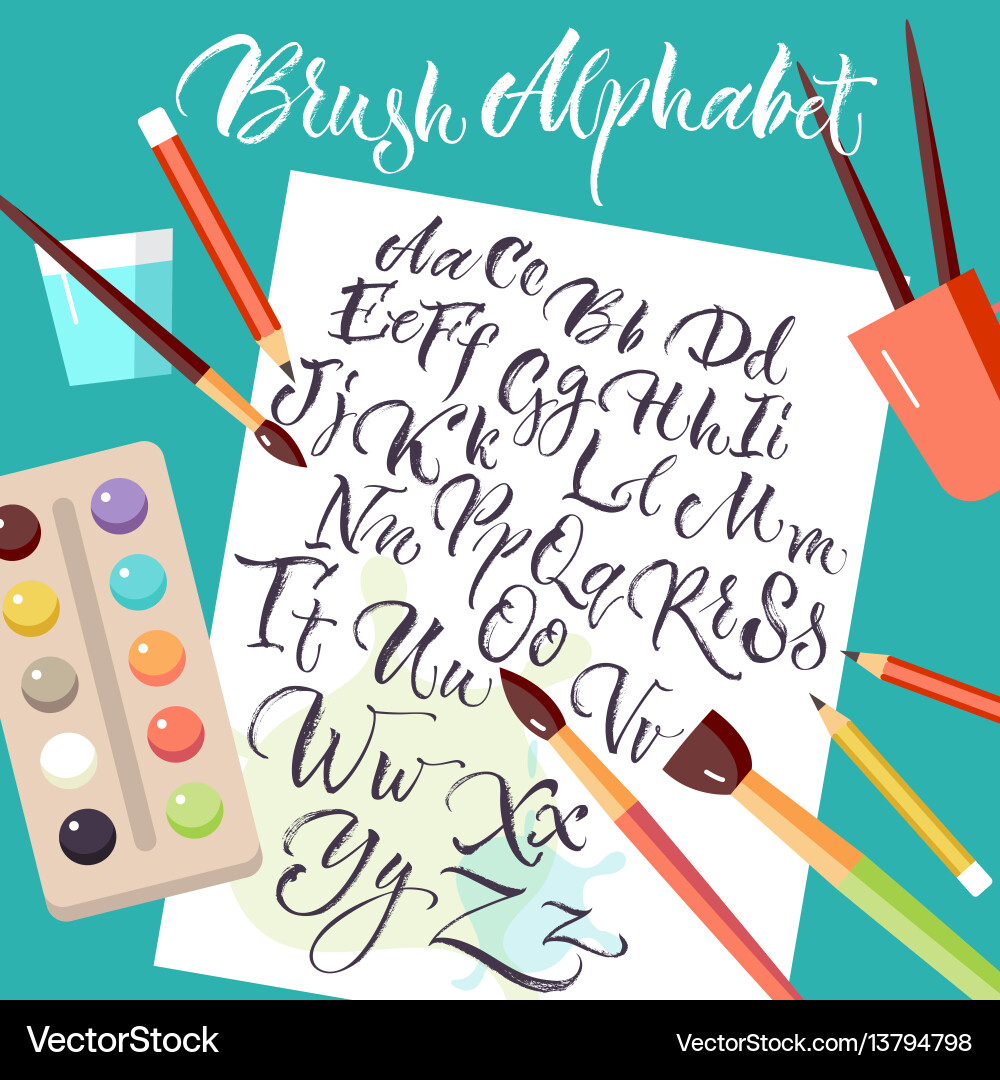 Brush Alphabet
Aa Cc Bb Dd
Ee Ff Gg Hh Ii
Jj Kk Ll Mm
Nn Pp Qq Rr Ss
Tt Uu Oo Vv
Ww Xx
Yy Zz
VectorStock
VectorStock.com/13794798